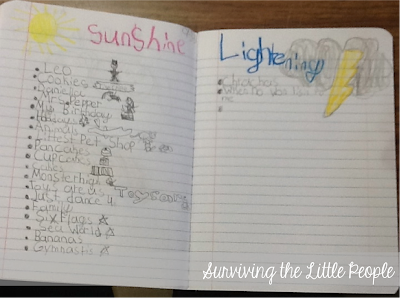 Sunshine
Leo
Cookies
Daniella
Mrs. Pepper
My Birthday
Animals
Littlest Pet Shop
Pancakes
Cupcakes
Cakes
Monster high
Toys
Just dance 4
Family
Six Flags
Sea World
Bananas
Gymnastis
Lightening
Surviving the Little People